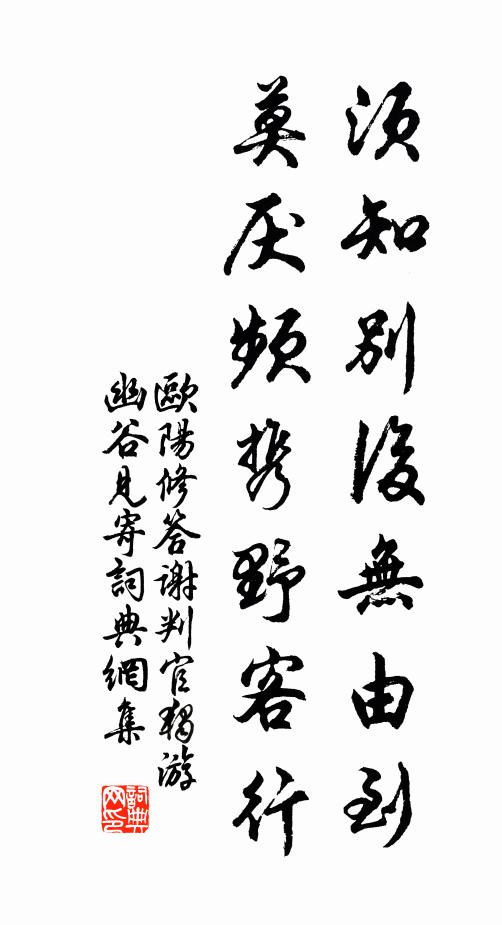 須知別後無由到
莫厌頻携野客行
歐陽修答謝判官獨游
幽谷見寄詞典網集
詞典
网印